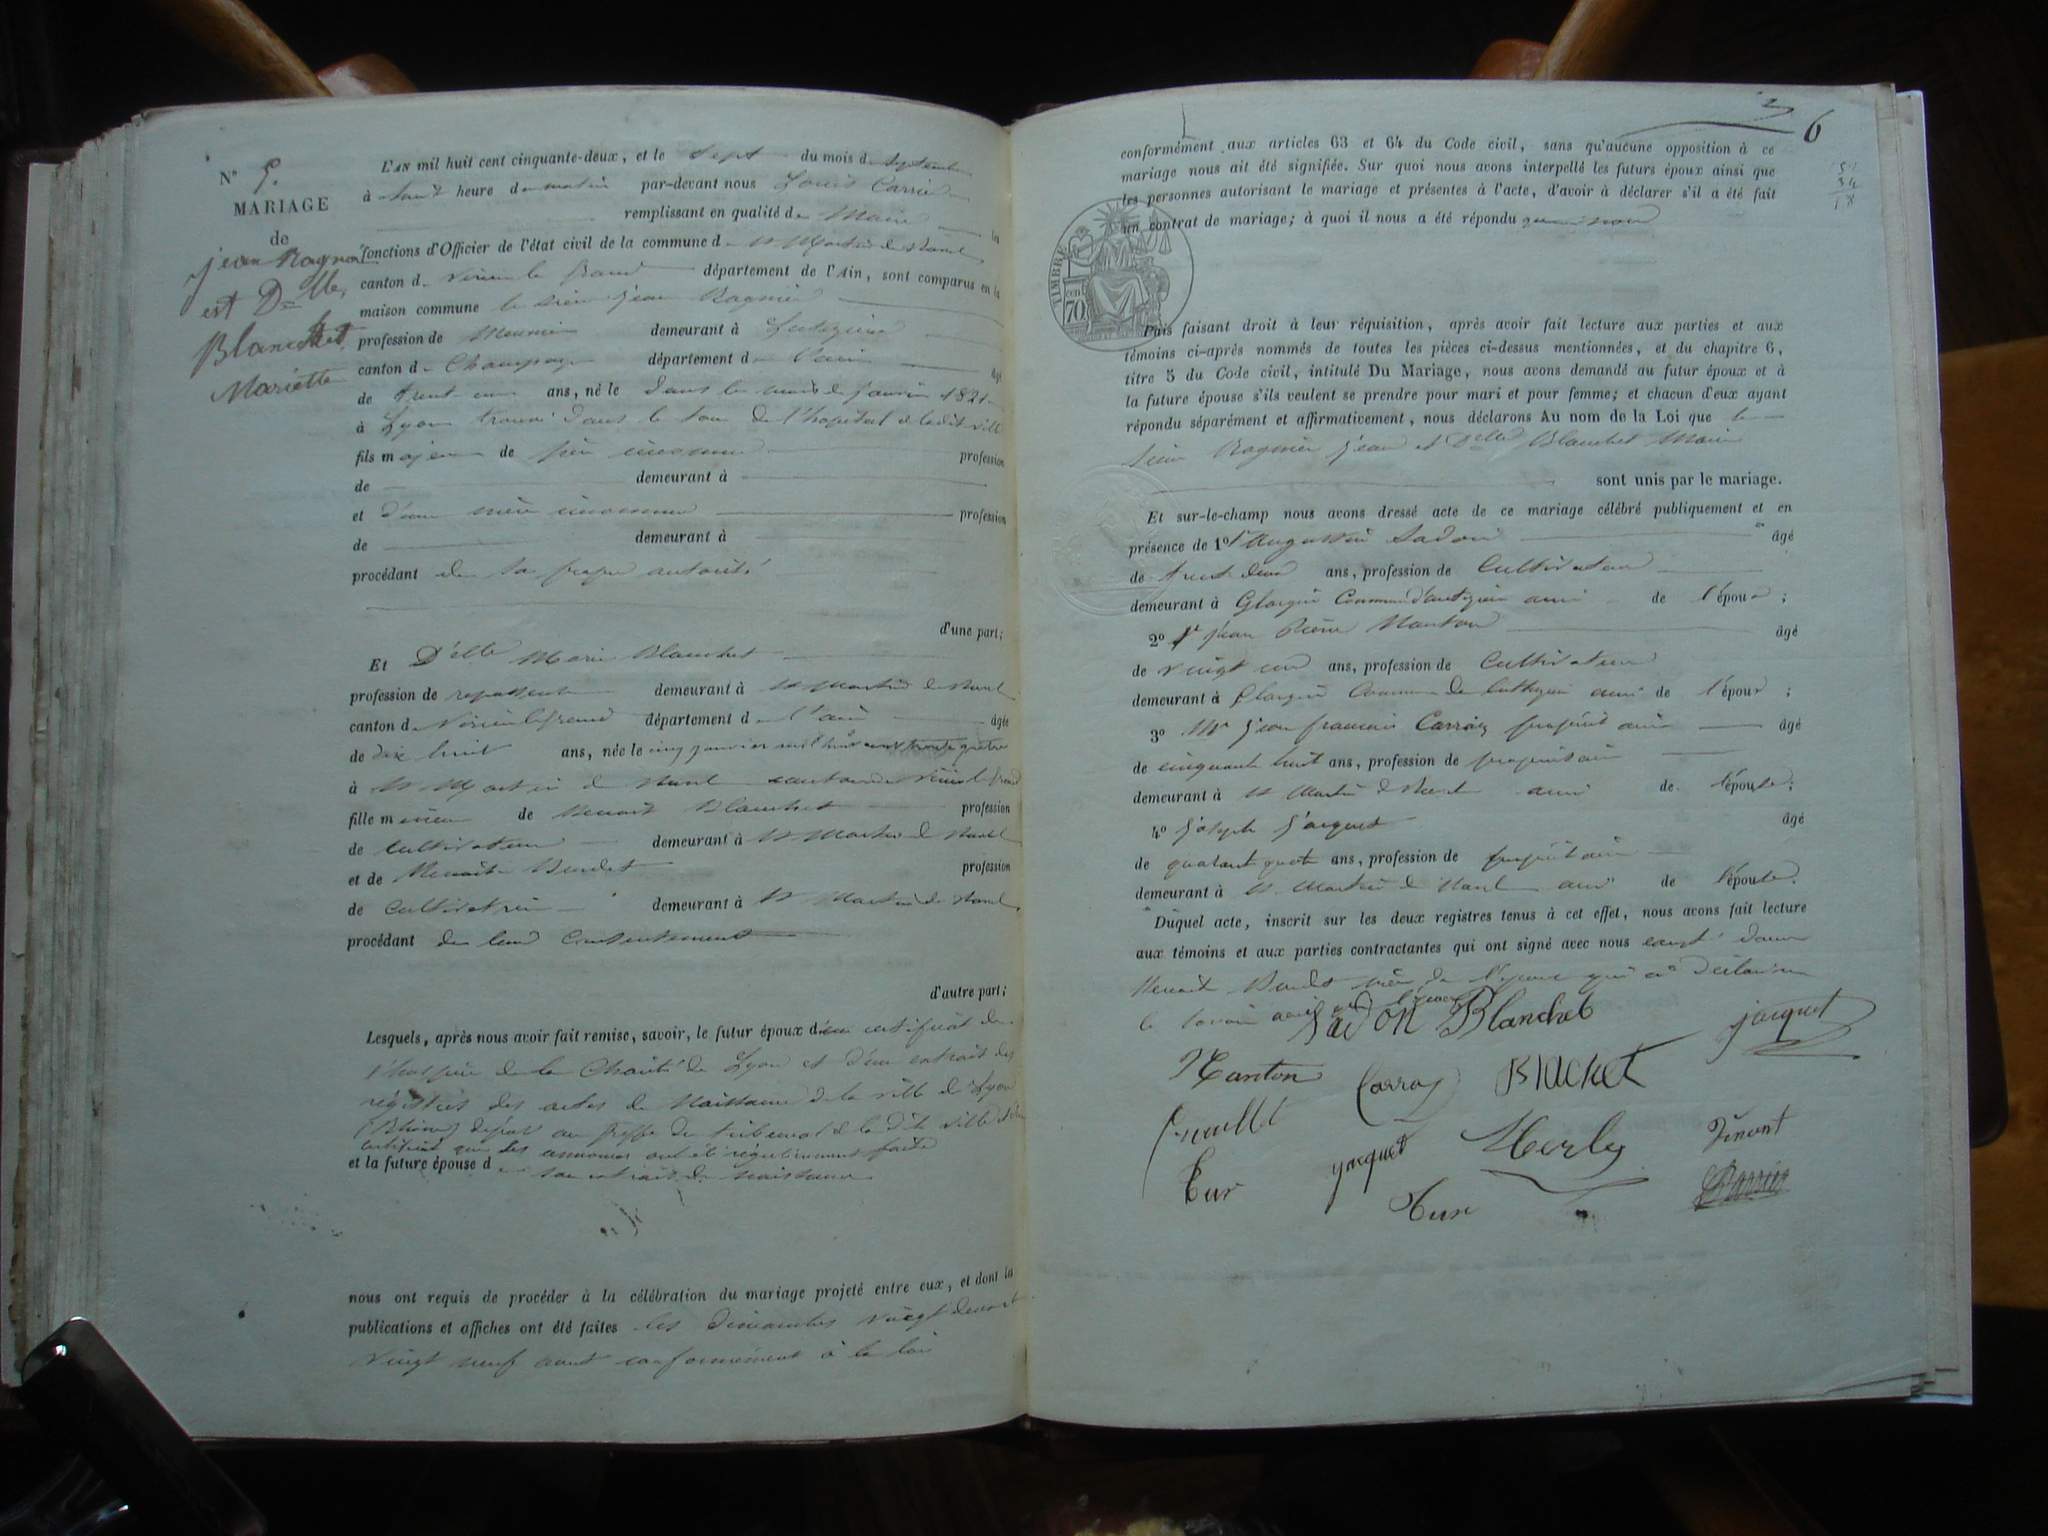 N° 5.
MARIAGE
de
jean Ragn
est Dlle
Blanchet
Mariette
L'AN mil huit cent cinquante-deux, et le sept du mois de septembre
à huit heure du matin par-devant nous Louis Carrier
remplissant en qualité de Maire les
fonctions d'Officier de l'état civil de la commune d St Martin de
canton d Virieu le Grand département de l'Ain, sont comparus en la
maison commune le sieur jean Ragnier
profession de Meunier demeurant à
canton d Champagne département d l'ain âgé
de trent un ans, né le dans le mois de janvier 1821
à Lyon trouvé dans le tour de l'hopital de ladit ville
fils majeur de père inconnu profession
de demeurant à
et d'une mère inconnue profession
de demeurant à
procédant de sa propre autorité
d'une part;
Et Delle Marie Blanchet
profession de demeurant à St Martin de
canton d Virieu le Grand département d l'ain âgée
de dix huit ans, née le cinq janvier mil huit cent trente quatre
à St Martin de canton de Virieu le Grand
fille mineure de Benoit Blanchet profession
de cultivateur demeurant à St Martin de
et de profession
de cultivatrice demeurant à St Martin de
procédant de leur consentement
d'autre part;
Lesquels, après nous avoir fait remise, savoir, le futur époux d'un certificat de
l'hospice de la Charité de Lyon et d'un extrait des
registres des actes de Naissance de la ville de Lyon
(Rhône) déposé au greffe du tribunal de la dite ville
certificat que les annonces ont été régulièrement faite
et la future épouse d son extrait de naissance
nous ont requis de procéder à la célébration du mariage projeté entre eux, et dont les
publications et affiches ont été faites les dimanches vingt deux et
vingt neuf aout conformément à la loi
6
conformément aux articles 63 et 64 du Code civil, sans qu'aucune opposition à ce
mariage nous ait été signifiée. Sur quoi nous avons interpellé les futurs époux ainsi que
les personnes autorisant le mariage et présentes à l'acte, d'avoir à déclarer s'il a été fait
un contrat de mariage; à quoi il nous a été répondu que non
TIMBRE
cen
70
Puis faisant droit à leur réquisition, après avoir fait lecture aux parties et aux
témoins ci-après nommés de toutes les pièces ci-dessus mentionnées, et du chapitre 6,
titre 5 du Code civil, intitulé Du Mariage, nous avons demandé au futur époux et à
la future épouse s'ils veulent se prendre pour mari et pour femme; et chacun d'eux ayant
répondu séparément et affirmativement, nous déclarons Au nom de la Loi que le
sieur Ragnier jean et Delle Blanchet Marie
sont unis par le mariage.
Et sur-le-champ nous avons dressé acte de ce mariage célébré publiquement et en
présence de 1° Augustin Sadon âgé
de trent deux ans, profession de Cultivateur
demeurant à Commune ami de l'époux;
2° Sr jean Pierre Nanton âgé
de vingt un ans, profession de Cultivateur
demeurant à Commune de ami de l'époux;
3° Mr jean francois Carray âgé
de cinquante huit ans, profession de propriétaire
demeurant à St Martin de ami de l'épouse;
4° joseph jacquet âgé
de quarant quatre ans, profession de propriétaire
demeurant à St Martin de ami de l'épouse.
Duquel acte, inscrit sur les deux registres tenus à cet effet, nous avons fait lecture
aux témoins et aux parties contractantes qui ont signé avec nous excepté
mère de l'épouse qui a déclaré ne
le savoir
Sadon Blanchet jacquet
Nanton Carray Blachet
Merley
jacquet
Carrier